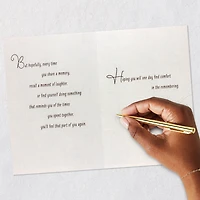 But hopefully, every time
you share a memory,
recall a moment of laughter
or find yourself doing something
that reminds you of the times
you spent together,
you'll feel that part of you again.
Hoping you will one day find comfort
in the remembering.